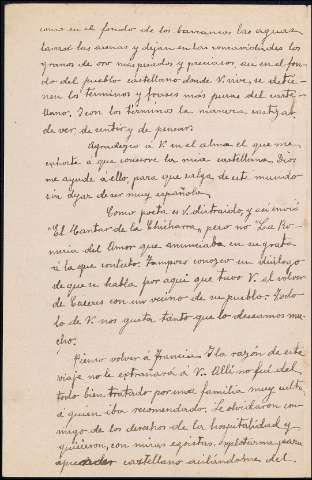 como en el fondo de los barrancos las aguas
lavan las arenas y dejan en las concavidades los
granos de oro mas pesados y preciosos asi en el fon-
do del pueblo castellano donde V. vive, se detie-
nen los términos y frases más puras del caste-
llano. Y con los términos la manera castiza
de ver, de sentir y de pensar.
Agradezco á V. en el alma el que me
exhorte á que conserve la musa castellana. Dios
me ayude á ello, para que salga de este mundo
sin dejar de ser muy español.
Como poeta es V. distraido, y así envió
"El Cantar de la Chicharra, pero no La Ro-
mería del Amor que anunciaba en su grata
á la que contesto. Tampoco conozco un diálogo
de que se habla por aqui que tuvo V. al volver
de Caceres con un vecino de su pueblo. Todo
lo de V. nos gusta tanto que lo deseamos mu-
cho.
Pienso volver á Francia. Y la razón de este
viaje no le extrañará á V. Allí no fuí del
todo bien tratado por una familia muy culta
á quien iba recomendado. Se olvidaron con-
migo de los derechos de la hospitalidad y
quisieron, con miras egoistas, explotarme para
aprender castellano aislándome del